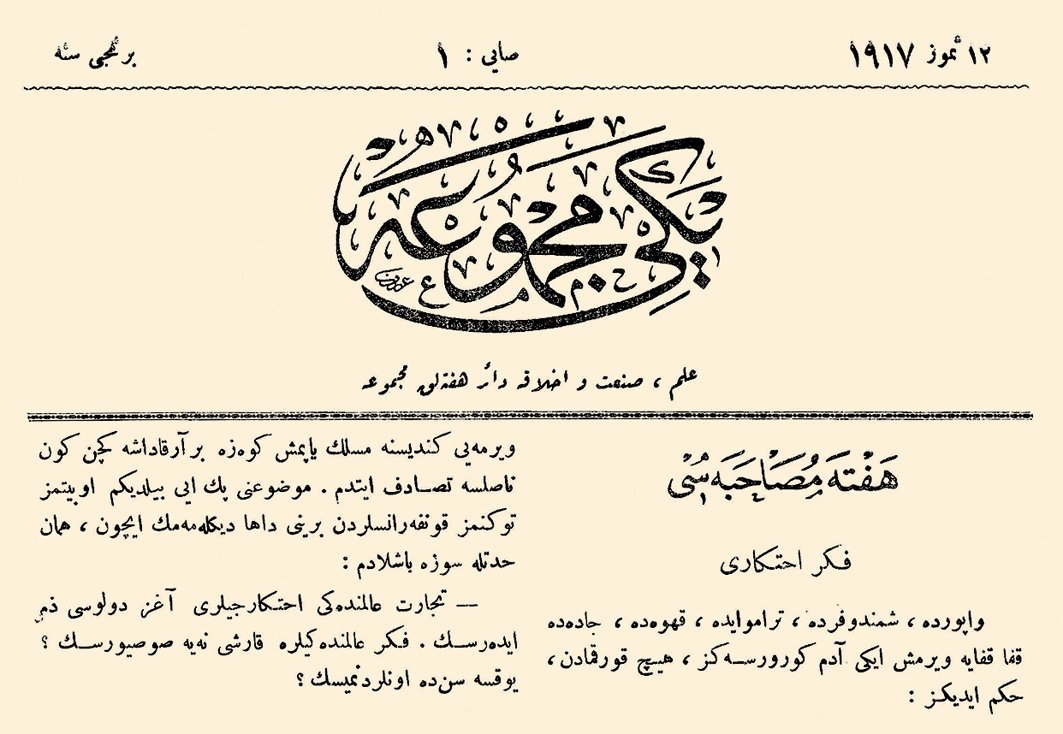 ١٢ تموز ١٩١٧
صايى : ١
برنجى سنه
يڭى مجموعه
علم ، صنعت و اخلاقه دائر هفته‌لق مجموعه
هَفْتَه مُصَاحَبَه‌سُى
فكر احتكارى
واپورده ، شمندوفرده ، تراموايده ، قهوه‌ده ، جاده‌ده
قفا قفايه ويرمش ايكى آدم كورورسه‌كز ، هيچ قورقمادن ،
حكم ايديكز :
ويرمه‌يى كنديسنه مسلك ياپمش كوه‌زه بر آرقاداشه كچن كون
ناصلسه تصادف ايتدم . موضوعنى پك ايى بيلديكم اوبيتمز
توكنمز قونفه‌رانسلردن برينى داها ديكله‌مه‌مك ايچون ، همان
حدتله سوزه باشلادم :
— تجارت عالمنده‌كى احتكارجيلرى آغز دولوسى ذم
ايده‌رسك . فكر عالمنده‌كيلره قارشى نه‌يه صوصيورسك ؟
يوقسه سن‌ده اونلردنميسك ؟